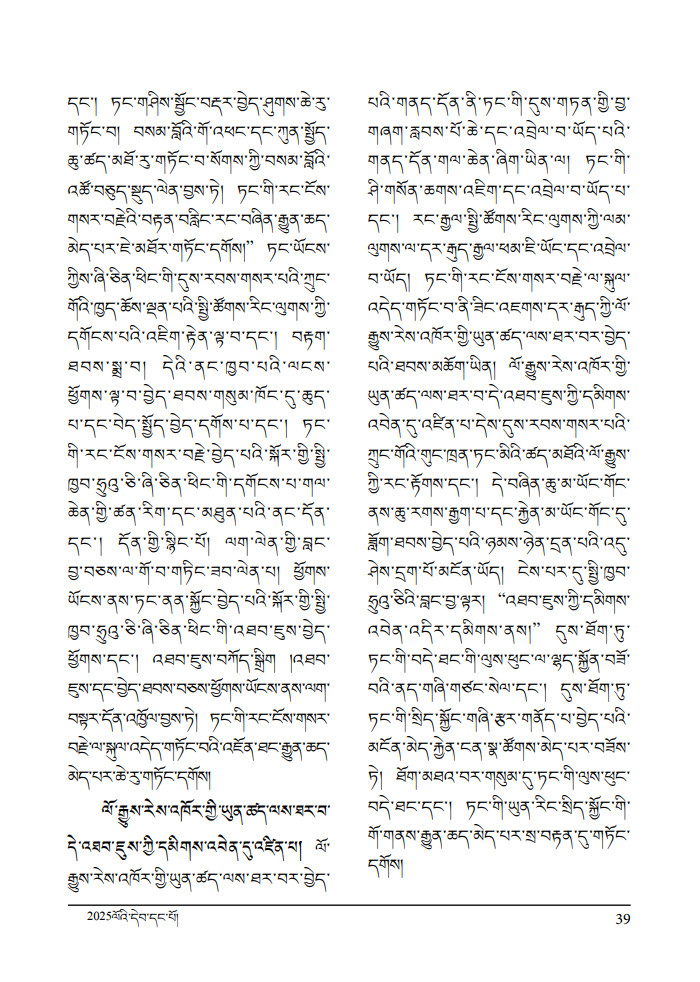 དང་། ཏང་གཤིས་སྦྱོང་བརྡར་བྱེད་ཤུགས་ཆེ་རུ་
གཏོང་བ། བསམ་བློའི་གོ་འཕང་དང་ཀུན་སྤྱོད་
ཆུ་ཚད་མཐོ་རུ་གཏོང་བ་སོགས་ཀྱི་བསམ་བློའི་
འཚོ་བཅུད་སྡུད་ལེན་བྱས་ཏེ། ཏང་གི་རང་ངོས་
གསར་བརྗེའི་བརྟན་བརླིང་རང་བཞིན་རྒྱུན་ཆད་
མེད་པར་ཇེ་མཐོར་གཏོང་དགོས།” ཏང་ཡོངས་
ཀྱིས་ཞི་ཅིན་ཕིང་གི་དུས་རབས་གསར་པའི་ཀྲུང་
གོའི་ཁྱད་ཆོས་ལྡན་པའི་སྤྱི་ཚོགས་རིང་ལུགས་ཀྱི་
དགོངས་པའི་འཇིག་རྟེན་ལྟ་བ་དང་། བརྟག་
ཐབས་སྨྲ་བ། དེའི་ནང་ཁྱབ་པའི་ལངས་
ཕྱོགས་ལྟ་བ་བྱེད་ཐབས་གསུམ་ཁོང་དུ་ཆུད་
པ་དང་བེད་སྤྱོད་བྱེད་དགོས་པ་དང་། ཏང་
གི་རང་ངོས་གསར་བརྗེ་བྱེད་པའི་སྐོར་གྱི་སྤྱི་
ཁྱབ་ཧྲུའུ་ཅི་ཞི་ཅིན་ཕིང་གི་དགོངས་པ་གལ་
ཆེན་གྱི་ཚན་རིག་དང་མཐུན་པའི་ནང་དོན་
དང་། དོན་གྱི་སྙིང་པོ། ལག་ལེན་གྱི་བླང་
བྱ་བཅས་ལ་གོ་བ་གཏིང་ཟབ་ལེན་པ། ཕྱོགས་
ཡོངས་ནས་ཏང་ནན་སྐྱོང་བྱེད་པའི་སྐོར་གྱི་སྤྱི་
ཁྱབ་ཧྲུའུ་ཅི་ཞི་ཅིན་ཕིང་གི་འཐབ་ཇུས་བྱེད་
ཕྱོགས་དང་། འཐབ་ཇུས་བཀོད་སྒྲིག །འཐབ་
ཇུས་དང་བྱེད་ཐབས་བཅས་ཕྱོགས་ཡོངས་ནས་ལག་
བསྟར་དོན་འཁྱོལ་བྱས་ཏེ། ཏང་གི་རང་ངོས་གསར་
བརྗེ་ལ་སྐུལ་འདེད་གཏོང་བའི་འཇོན་ཐང་རྒྱུན་ཆད་
མེད་པར་ཆེ་རུ་གཏོང་དགོས།
ལོ་རྒྱུས་རེས་འཁོར་གྱི་ཡུན་ཚད་ལས་ཐར་བ་
དེ་འཐབ་ཇུས་ཀྱི་དམིགས་འབེན་དུ་འཛིན་པ། ལོ་
རྒྱུས་རེས་འཁོར་གྱི་ཡུན་ཚད་ལས་ཐར་བར་བྱེད་
པའི་གནད་དོན་ནི་ཏང་གི་དུས་གཏན་གྱི་བྱ་
གཞག་རླབས་པོ་ཆེ་དང་འབྲེལ་བ་ཡོད་པའི་
གནད་དོན་གལ་ཆེན་ཞིག་ཡིན་ལ། ཏང་གི་
ཤི་གསོན་ཆགས་འཇིག་དང་འབྲེལ་བ་ཡོད་པ་
དང་། རང་རྒྱལ་སྤྱི་ཚོགས་རིང་ལུགས་ཀྱི་ལམ་
ལུགས་ལ་དར་རྒུད་རྒྱལ་ཕམ་ཇི་ཡོང་དང་འབྲེལ་
བ་ཡོད། ཏང་གི་རང་ངོས་གསར་བརྗེ་ལ་སྐུལ་
འདེད་གཏོང་བ་ནི་ཟིང་འཇགས་དར་རྒུད་ཀྱི་ལོ་
རྒྱུས་རེས་འཁོར་གྱི་ཡུན་ཚད་ལས་ཐར་བར་བྱེད་
པའི་ཐབས་མཆོག་ཡིན། ལོ་རྒྱུས་རེས་འཁོར་གྱི་
ཡུན་ཚད་ལས་ཐར་བ་དེ་འཐབ་ཇུས་ཀྱི་དམིགས་
འབེན་དུ་འཛིན་པ་དེས་དུས་རབས་གསར་པའི་
ཀྲུང་གོའི་གུང་ཁྲན་ཏང་མིའི་ཚད་མཐོའི་ལོ་རྒྱུས་
ཀྱི་རང་རྟོགས་དང་། དེ་བཞིན་ཆུ་མ་ཡོང་གོང་
ནས་ཆུ་རགས་རྒྱག་པ་དང་རྐྱེན་མ་ཡོང་གོང་དུ་
ཟློག་ཐབས་བྱེད་པའི་ཉམས་ཉེན་དྲན་པའི་འདུ་
ཤེས་དྲག་པོ་མངོན་ཡོད། ངེས་པར་དུ་སྤྱི་ཁྱབ་
ཧྲུའུ་ཅིའི་བླང་བྱ་ལྟར། “འཐབ་ཇུས་ཀྱི་དམིགས་
འབེན་འདིར་དམིགས་ནས།” དུས་ཐོག་ཏུ་
ཏང་གི་བདེ་ཐང་གི་ལུས་ཕུང་ལ་ལྷད་སྐྱོན་བཟོ་
བའི་ནད་གཞི་གཙང་སེལ་དང་། དུས་ཐོག་ཏུ་
ཏང་གི་སྲིད་སྐྱོང་གཞི་རྩར་གནོད་པ་བྱེད་པའི་
མངོན་མེད་རྐྱེན་ངན་སྣ་ཚོགས་མེད་པར་བཟོས་
ཏེ། ཐོག་མཐའ་བར་གསུམ་དུ་ཏང་གི་ལུས་ཕུང་
བདེ་ཐང་དང་། ཏང་གི་ཡུན་རིང་སྲིད་སྐྱོང་གི་
གོ་གནས་རྒྱུན་ཆད་མེད་པར་སྲ་བརྟན་དུ་གཏོང་
དགོས།
2025ལོའི་དེབ་དང་པོ།
39